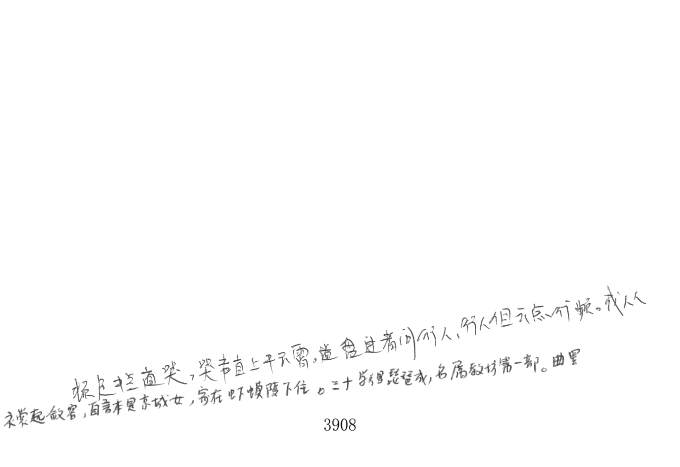 顿足拦道哭,哭声直上干云霄,道旁过者问行人,行人但云点行频。或从
衣裳起敛容,自言本是京城女,家在虾蟆陵下住。三十学得琵琶成,名属教坊第一部。曲罢
3908